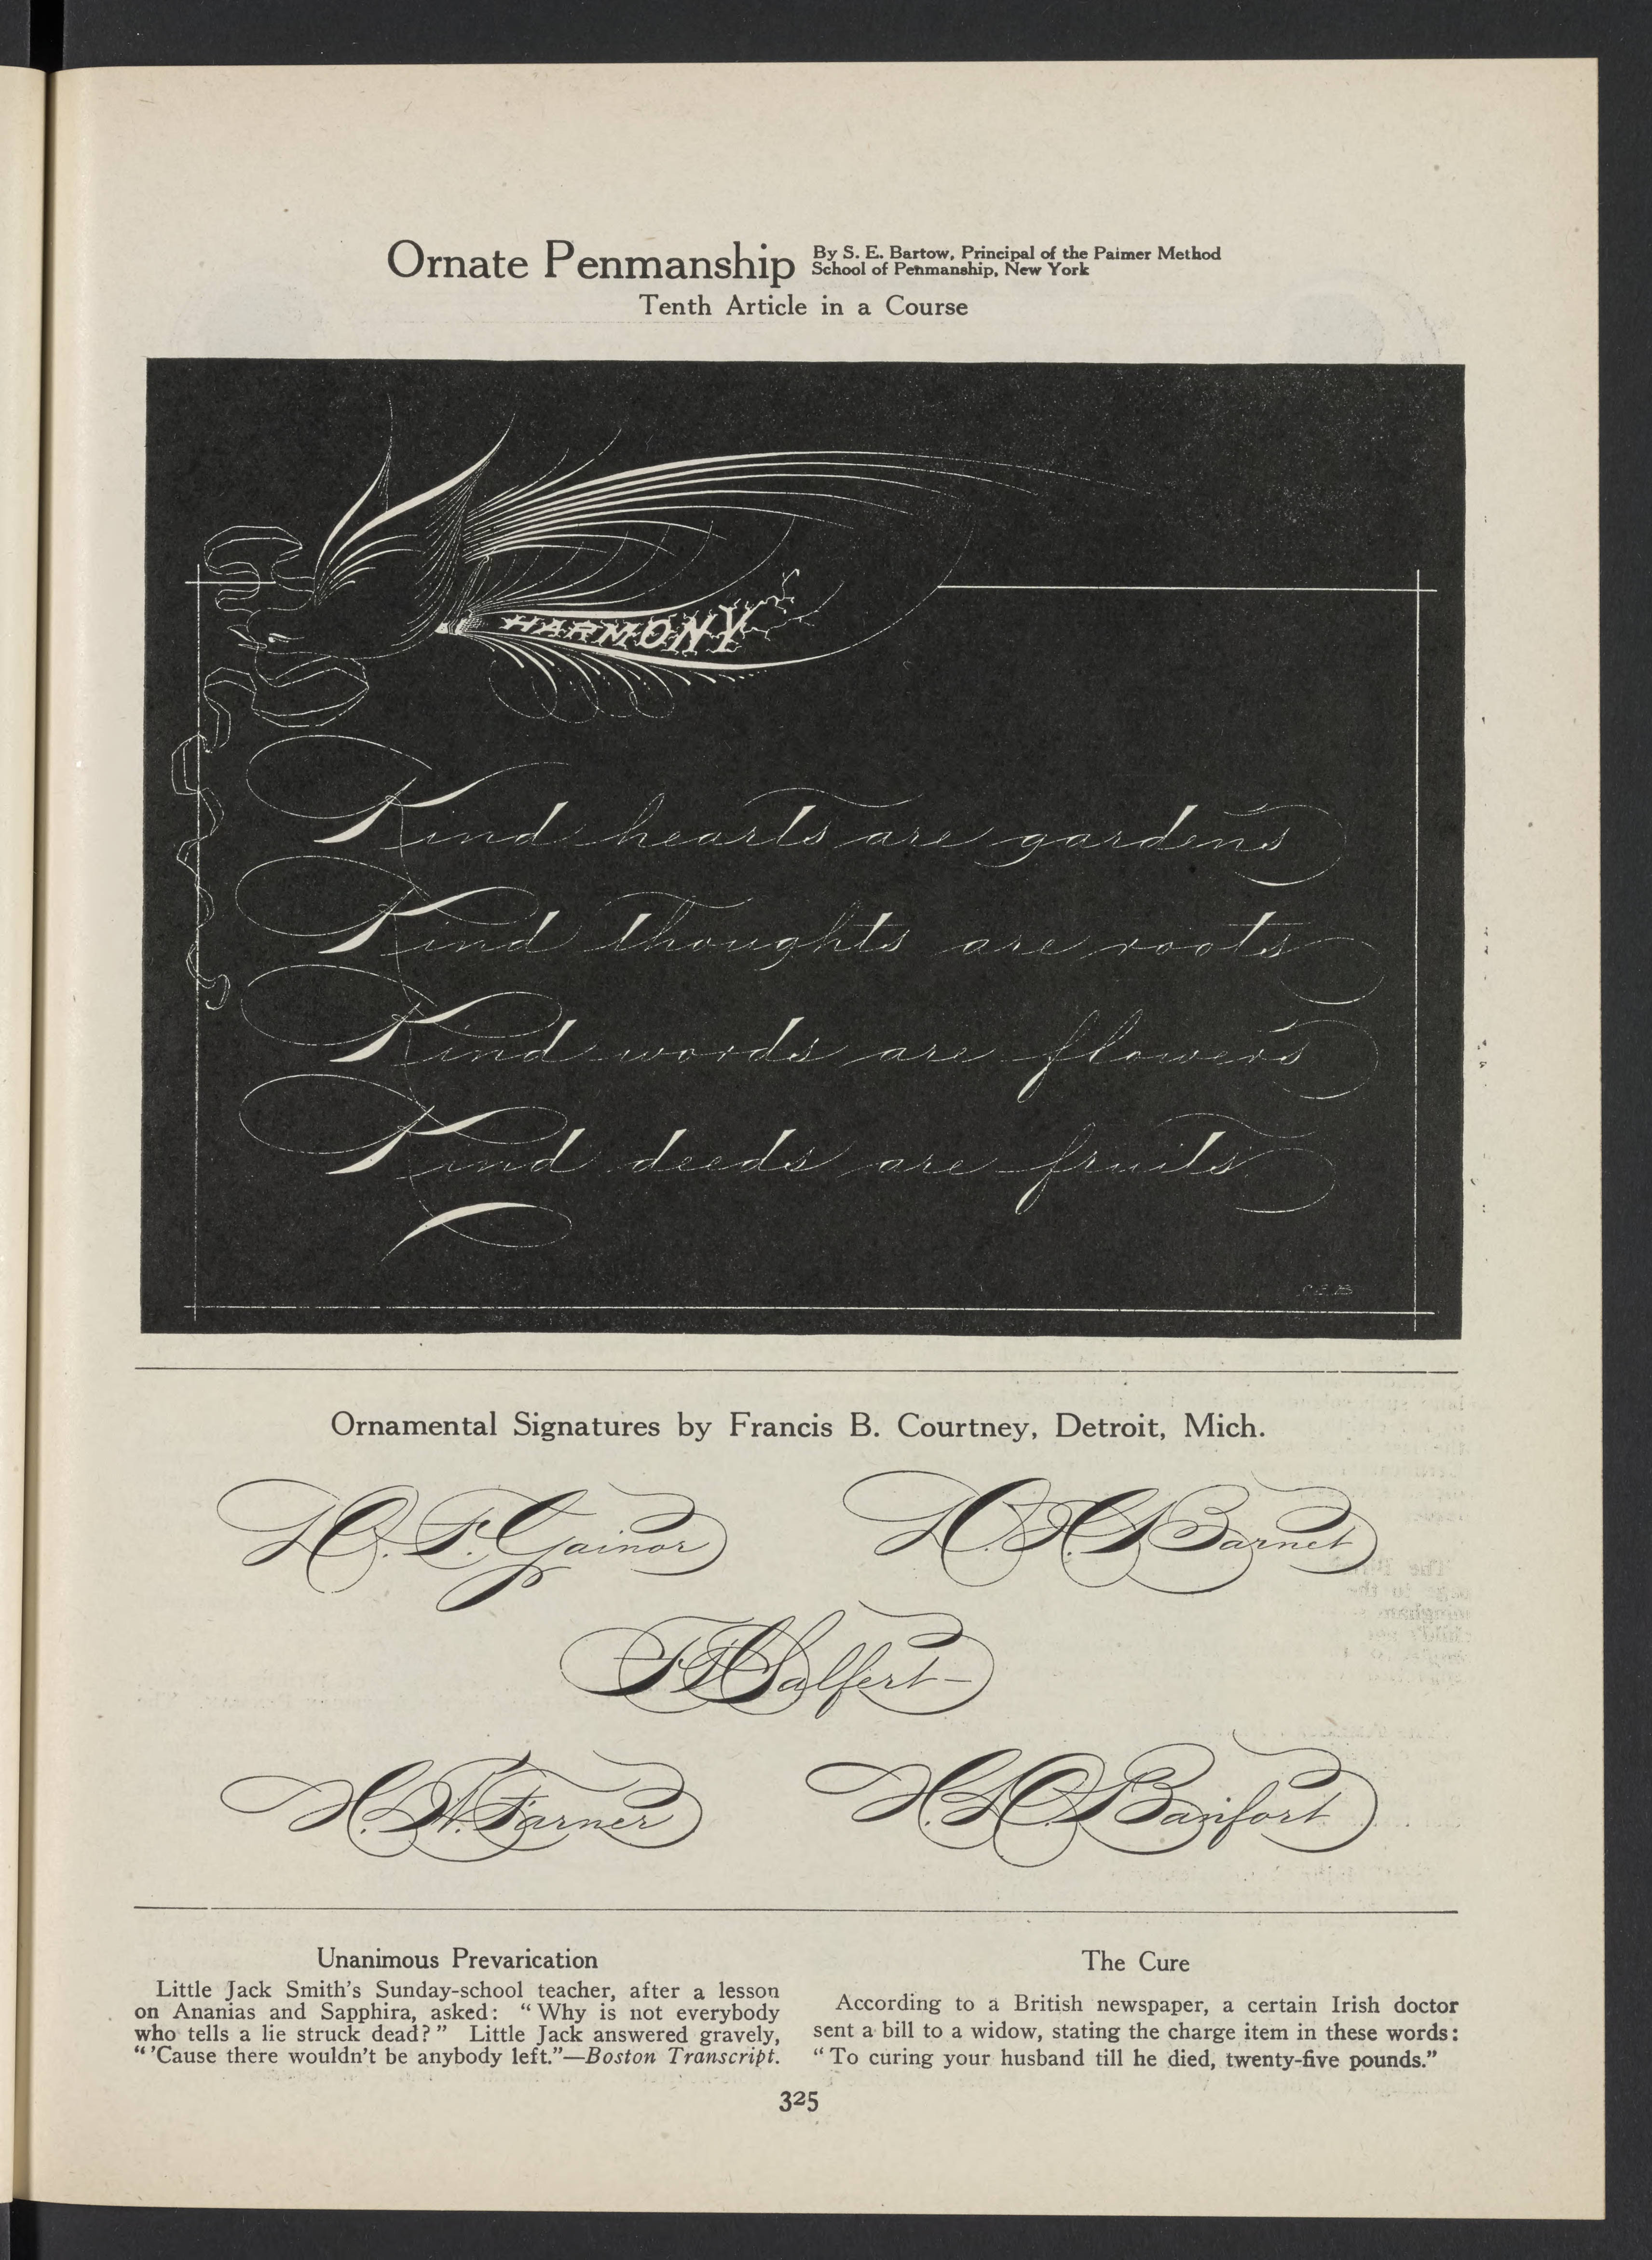 Ornate Penmanship
By S. E. Bartow, Principal of the Palmer Method
School of Penmanship, New York
Tenth Article in a Course
HARMONY
Kind hearts are gardens
Kind thoughts are roots
Kind words are flowers
Kind deeds are fruits
S.E.B
Ornamental Signatures by Francis B. Courtney, Detroit, Mich.
F. Gainor
Barnet
Salfert
Farner
Banfort
Unanimous Prevarication
Little Jack Smith's Sunday-school teacher, after a lesson
on Ananias and Sapphira, asked: "Why is not everybody
who tells a lie struck dead?" Little Jack answered gravely,
"'Cause there wouldn't be anybody left."—Boston Transcript.
The Cure
According to a British newspaper, a certain Irish doctor
sent a bill to a widow, stating the charge item in these words:
"To curing your husband till he died, twenty-five pounds."
325